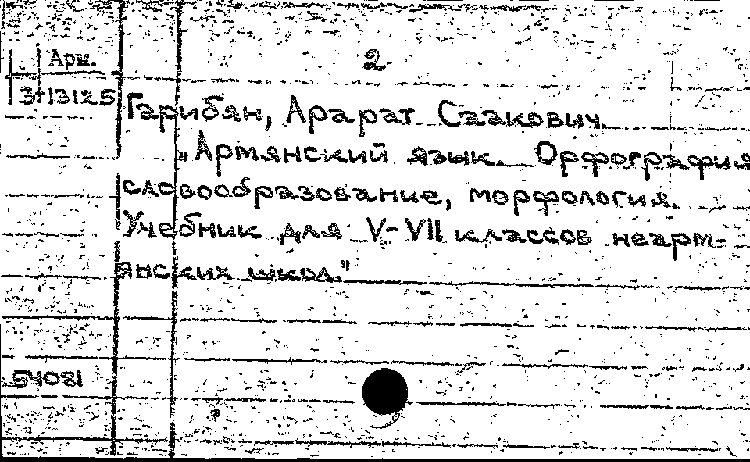 Арм.
2
3+13125
Гарибян, Арарат Саакович.
„Армянский язык. Орфография
словообразование, морфология.
Учебник для V-VII классов неарм-
янских школ."
54081